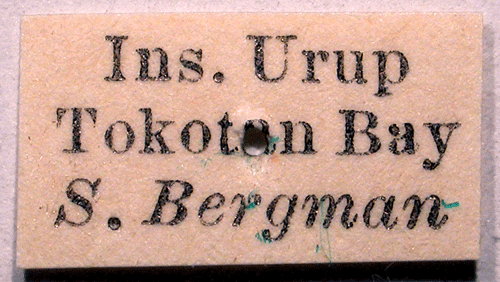 Ins. Urup
Tokotan Bay
S. Bergman